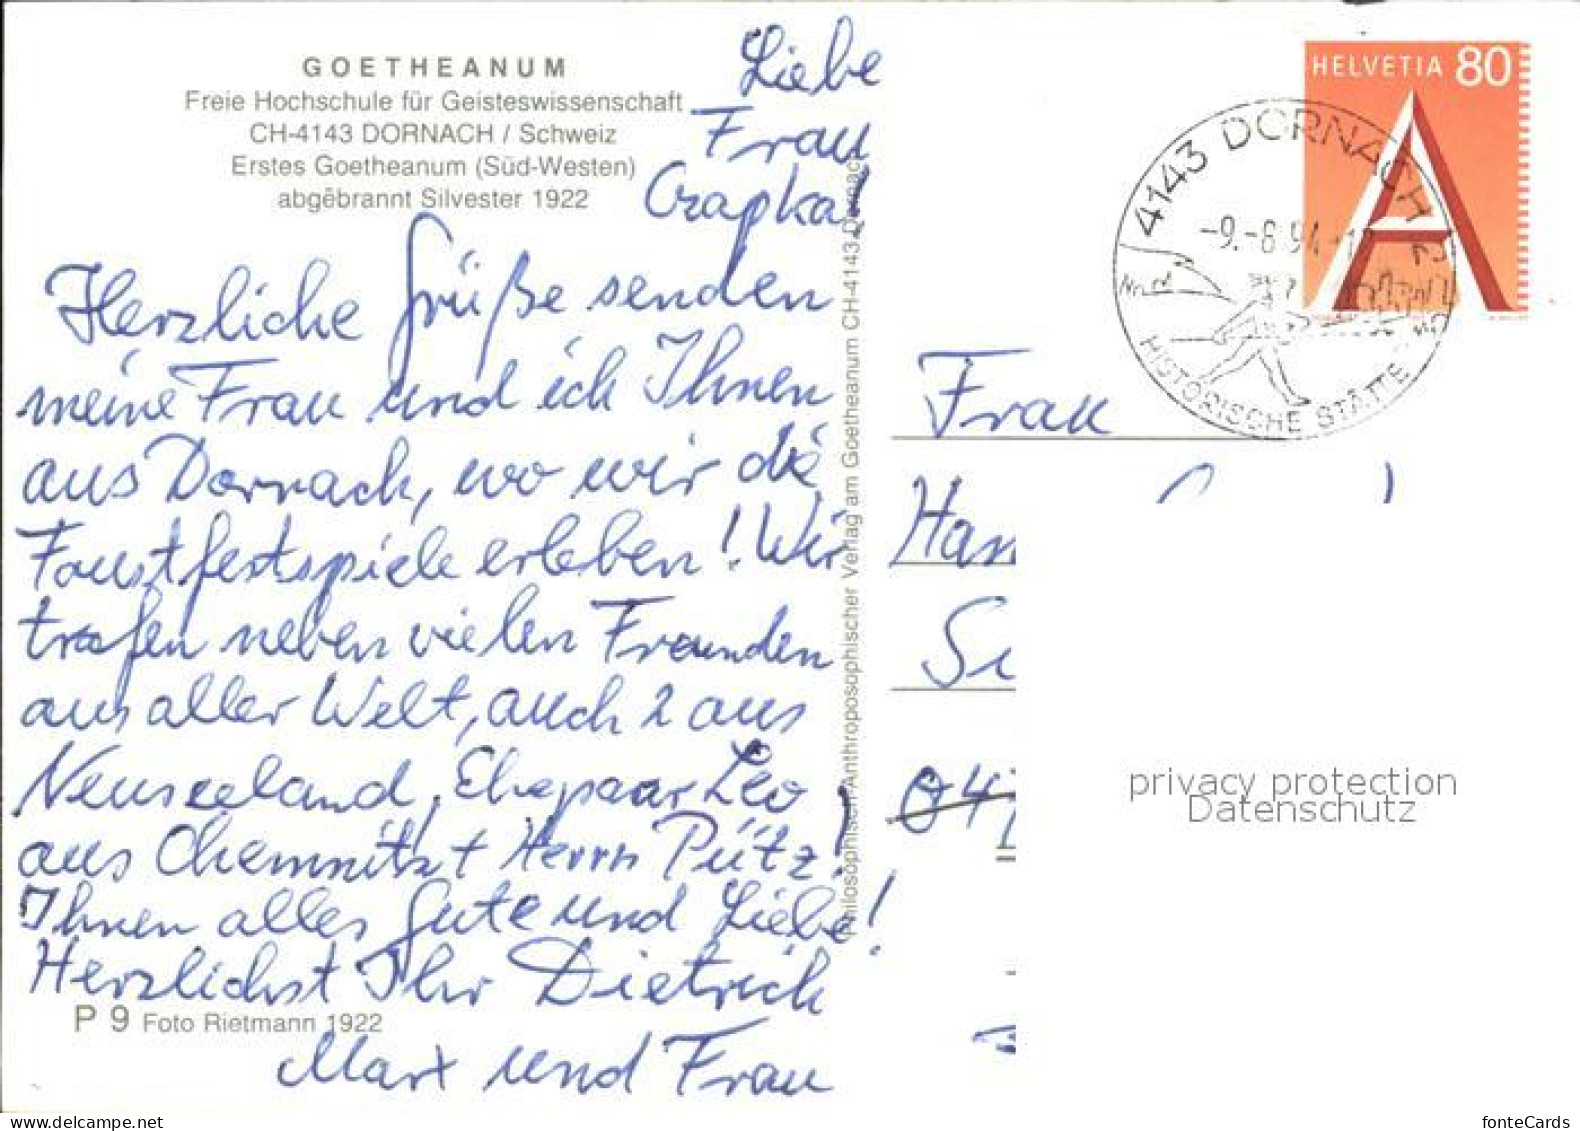 GOETHEANUM
Freie Hochschule für Geisteswissenschaft
CH-4143 DORNACH / Schweiz
Erstes Goetheanum (Süd-Westen)
abgebrannt Silvester 1922
Liebe
Frau
Czapka!
Herzliche Grüße senden
meine Frau und ich Ihnen
aus Dornach, wo wir die
Faustfestspiele erleben! Wir
trafen neben vielen Freunden
aus aller Welt, auch 2 aus
Neuseeland, Ehepaar Leo
aus Chemnitz + Herrn Pütz!
Ihnen alles Gute und Liebe!
Herzlichst Ihr Dietrich
Marx und Frau
P 9 Foto Rietmann 1922
Philosophisch-Anthroposophischer Verlag am Goetheanum CH-4143 Dornach
HELVETIA 80
A
4143 DORNACH
-9.-8.94
HISTORISCHE STÄTTE
Frau
Han
privacy protection
Datenschutz
www.delcampe.net
fonteCards